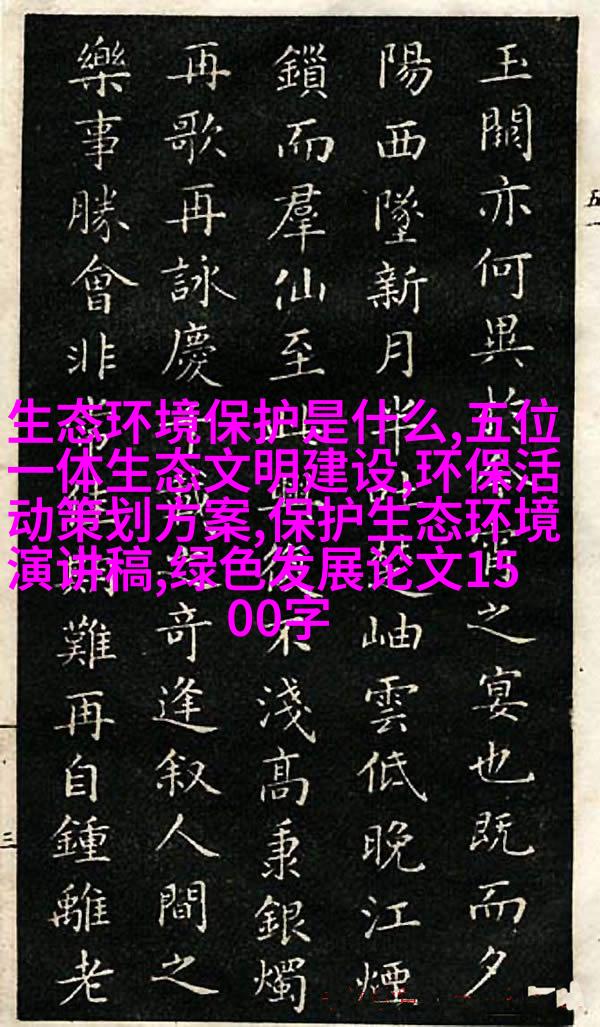 玉闕亦何異於今宵之宴也既而夕
陽西墜新月半吐楚岫雲低晚江煙
鎖而羣仙至此興復不淺高秉銀燭
再歌再詠慶千載之奇逢叙人間之
樂事勝會非常佳期難再自鍾離老
生态环境保护是什么,五位
一体生态文明建设,环保活
动策划方案,保护生态环境
演讲稿,绿色发展论文15
00字
五一
三